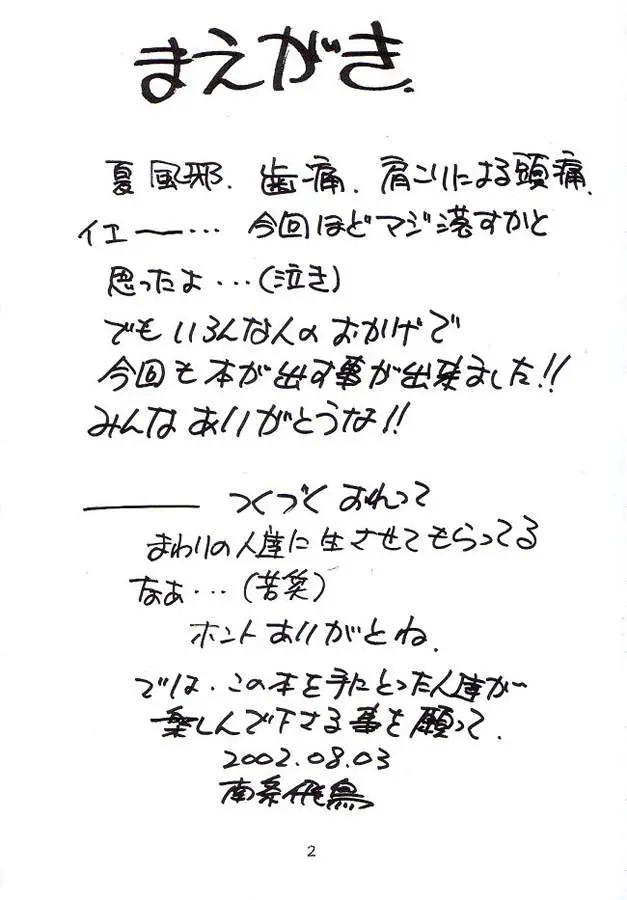 まえがき.
夏風邪. 歯痛. 肩こりによる頭痛.
イエ――… 今回ほどマジ落すかと
思ったよ…(泣き)
でもいろんな人のおかげで
今回も本が出す事が出来ました!!
みんなありがとうな!!
―――― つくづくおれって
まわりの人達に生させてもらってる
なぁ…(苦笑)
ホントありがとね.
では、この本を手にとった人達が〜
楽しんで下さる事を願って.
2002.08.03
南条飛鳥
2